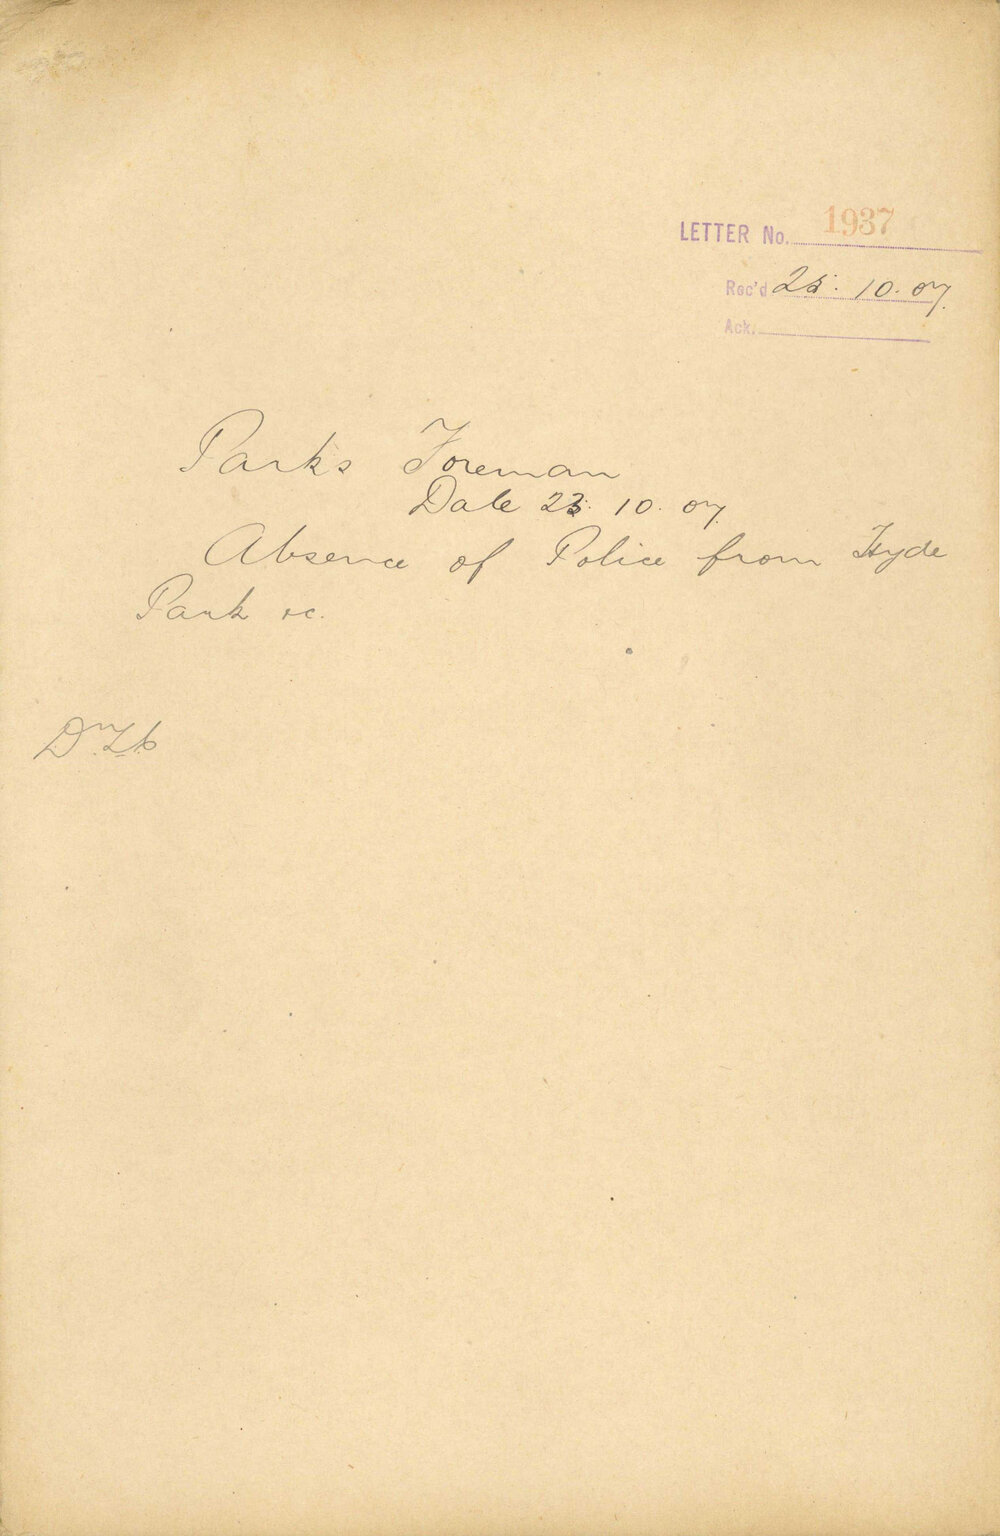 LETTER No. 1937
Rec'd 25. 10. 07.
Ack.
Parks Foreman
Date 23. 10. 07.
Absence of Police from Hyde
Park &c.